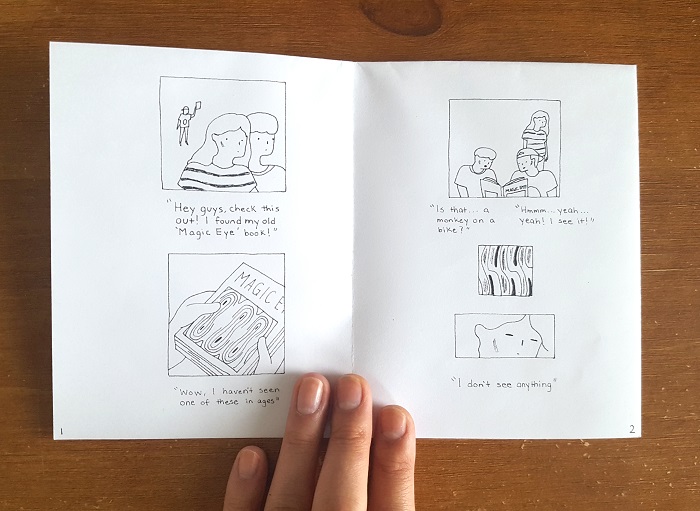 "Hey guys, check this
out! I found my old
'Magic Eye' book!"
MAGIC E
"Wow, I haven't seen
one of these in ages"
1
MAGIC EYE
"Is that... a
monkey on a
bike?"
"Hmmm... yeah...
yeah! I see it!"
"I don't see anything"
2